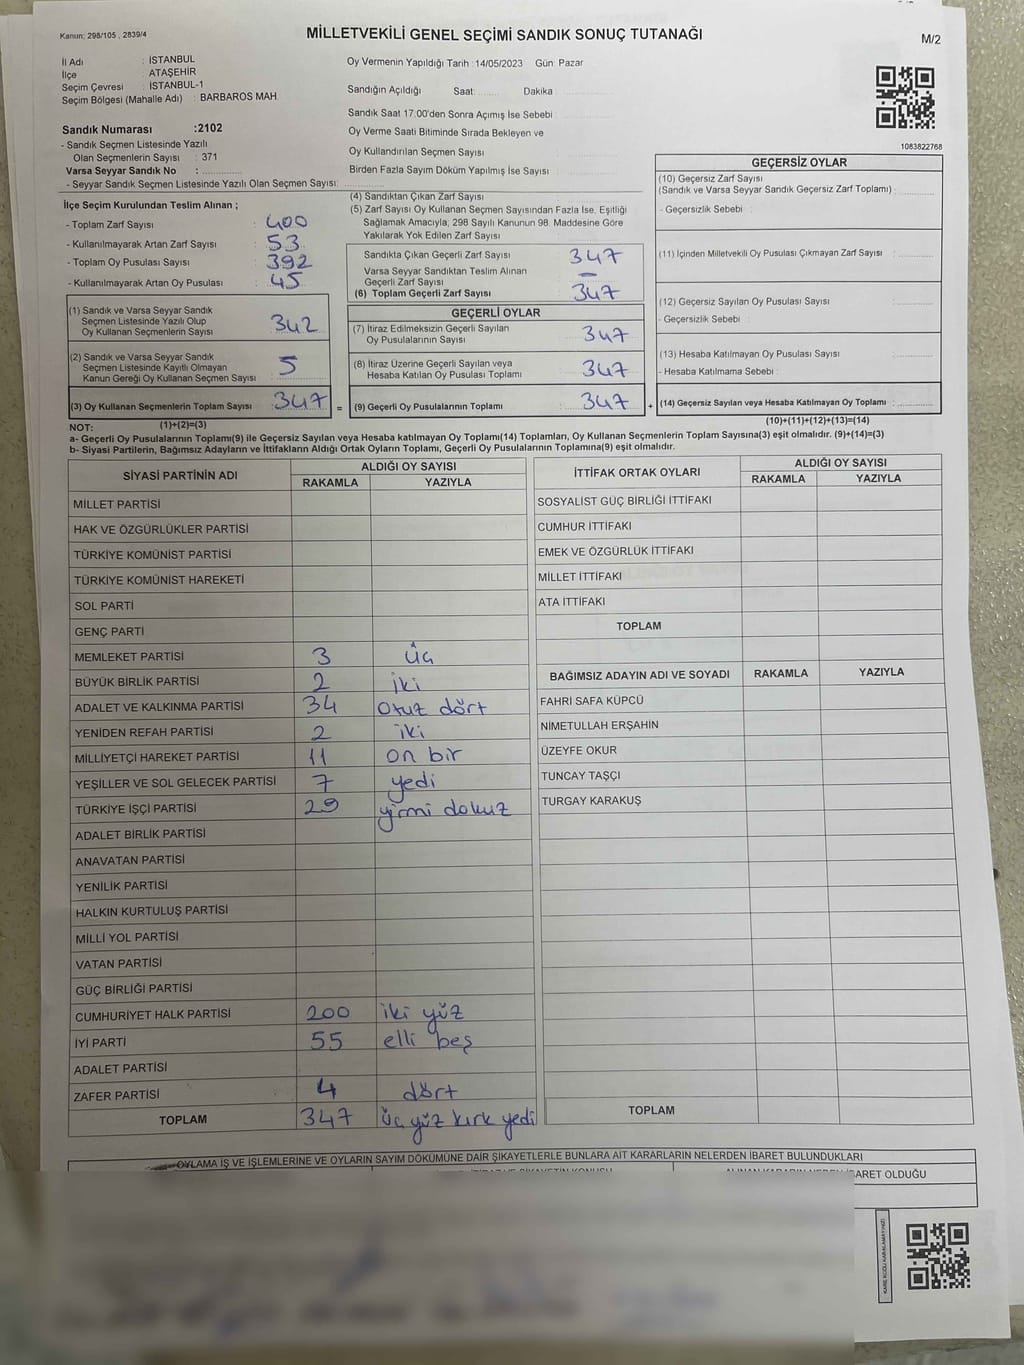 Kanun: 298/105 , 2839/4
MİLLETVEKİLİ GENEL SEÇİMİ SANDIK SONUÇ TUTANAĞI
M/2
İl Adı : İSTANBUL
İlçe ATAŞEHİR
Seçim Çevresi : İSTANBUL-1
Seçim Bölgesi (Mahalle Adı) : BARBAROS MAH.
Sandık Numarası :2102
- Sandık Seçmen Listesinde Yazılı
Olan Seçmenlerin Sayısı : 371
Varsa Seyyar Sandık No :
- Seyyar Sandık Seçmen Listesinde Yazılı Olan Seçmen Sayısı:
Oy Vermenin Yapıldığı Tarih :14/05/2023 Gün: Pazar
Sandığın Açıldığı Saat: Dakika :
Sandık Saat 17:00'den Sonra Açımış İse Sebebi :
Oy Verme Saati Bitiminde Sırada Bekleyen ve
Oy Kullandırılan Seçmen Sayısı :
Birden Fazla Sayım Döküm Yapılmış İse Sayısı :
1083822768
İlçe Seçim Kurulundan Teslim Alınan ;
- Toplam Zarf Sayısı : 400
- Kullanılmayarak Artan Zarf Sayısı : 53
- Toplam Oy Pusulası Sayısı : 392
- Kullanılmayarak Artan Oy Pusulası : 45
(1) Sandık ve Varsa Seyyar Sandık
Seçmen Listesinde Yazılı Olup
Oy Kullanan Seçmenlerin Sayısı : 342
(2) Sandık ve Varsa Seyyar Sandık
Seçmen Listesinde Kayıtlı Olmayan
Kanun Gereği Oy Kullanan Seçmen Sayısı : 5
(3) Oy Kullanan Seçmenlerin Toplam Sayısı : 347
(1)+(2)=(3)
(4) Sandıktan Çıkan Zarf Sayısı :
(5) Zarf Sayısı Oy Kullanan Seçmen Sayısından Fazla İse, Eşitliği
Sağlamak Amacıyla; 298 Sayılı Kanunun 98. Maddesine Göre
Yakılarak Yok Edilen Zarf Sayısı :
Sandıkta Çıkan Geçerli Zarf Sayısı : 347
Varsa Seyyar Sandıktan Teslim Alınan
Geçerli Zarf Sayısı : —
(6) Toplam Geçerli Zarf Sayısı : 347
GEÇERLİ OYLAR
(7) İtiraz Edilmeksizin Geçerli Sayılan
Oy Pusulalarının Sayısı : 347
(8) İtiraz Üzerine Geçerli Sayılan veya
Hesaba Katılan Oy Pusulası Toplamı : 347
= (9) Geçerli Oy Pusulalarının Toplamı : 347 +
GEÇERSİZ OYLAR
(10) Geçersiz Zarf Sayısı
(Sandık ve Varsa Seyyar Sandık Geçersiz Zarf Toplamı) :
- Geçersizlik Sebebi :
(11) İçinden Milletvekili Oy Pusulası Çıkmayan Zarf Sayısı :
(12) Geçersiz Sayılan Oy Pusulası Sayısı :
- Geçersizlik Sebebi :
(13) Hesaba Katılmayan Oy Pusulası Sayısı :
- Hesaba Katılmama Sebebi :
(14) Geçersiz Sayılan veya Hesaba Katılmayan Oy Toplamı :
(10)+(11)+(12)+(13)=(14)
NOT:
a- Geçerli Oy Pusulalarının Toplamı(9) ile Geçersiz Sayılan veya Hesaba katılmayan Oy Toplamı(14) Toplamları, Oy Kullanan Seçmenlerin Toplam Sayısına(3) eşit olmalıdır. (9)+(14)=(3)
b- Siyasi Partilerin, Bağımsız Adayların ve İttifakların Aldığı Ortak Oyların Toplamı, Geçerli Oy Pusulalarının Toplamına(9) eşit olmalıdır.
SİYASİ PARTİNİN ADI ALDIĞI OY SAYISI
RAKAMLA YAZIYLA
MİLLET PARTİSİ
HAK VE ÖZGÜRLÜKLER PARTİSİ
TÜRKİYE KOMÜNİST PARTİSİ
TÜRKİYE KOMÜNİST HAREKETİ
SOL PARTİ
GENÇ PARTİ
MEMLEKET PARTİSİ 3 üç
BÜYÜK BİRLİK PARTİSİ 2 iki
ADALET VE KALKINMA PARTİSİ 34 otuz dört
YENİDEN REFAH PARTİSİ 2 iki
MİLLİYETÇİ HAREKET PARTİSİ 11 on bir
YEŞİLLER VE SOL GELECEK PARTİSİ 7 yedi
TÜRKİYE İŞÇİ PARTİSİ 29 yirmi dokuz
ADALET BİRLİK PARTİSİ
ANAVATAN PARTİSİ
YENİLİK PARTİSİ
HALKIN KURTULUŞ PARTİSİ
MİLLİ YOL PARTİSİ
VATAN PARTİSİ
GÜÇ BİRLİĞİ PARTİSİ
CUMHURİYET HALK PARTİSİ 200 iki yüz
İYİ PARTİ 55 elli beş
ADALET PARTİSİ
ZAFER PARTİSİ 4 dört
TOPLAM 347 üç yüz kırk yedi
İTTİFAK ORTAK OYLARI ALDIĞI OY SAYISI
RAKAMLA YAZIYLA
SOSYALİST GÜÇ BİRLİĞİ İTTİFAKI
CUMHUR İTTİFAKI
EMEK VE ÖZGÜRLÜK İTTİFAKI
MİLLET İTTİFAKI
ATA İTTİFAKI
TOPLAM
BAĞIMSIZ ADAYIN ADI VE SOYADI RAKAMLA YAZIYLA
FAHRİ SAFA KÜPCÜ
NİMETULLAH ERŞAHİN
ÜZEYFE OKUR
TUNCAY TAŞÇI
TURGAY KARAKUŞ
TOPLAM
OYLAMA İŞ VE İŞLEMLERİNE VE OYLARIN SAYIM DÖKÜMÜNE DAİR ŞİKAYETLERLE BUNLARA AİT KARARLARIN NELERDEN İBARET BULUNDUKLARI
İBARET OLDUĞU